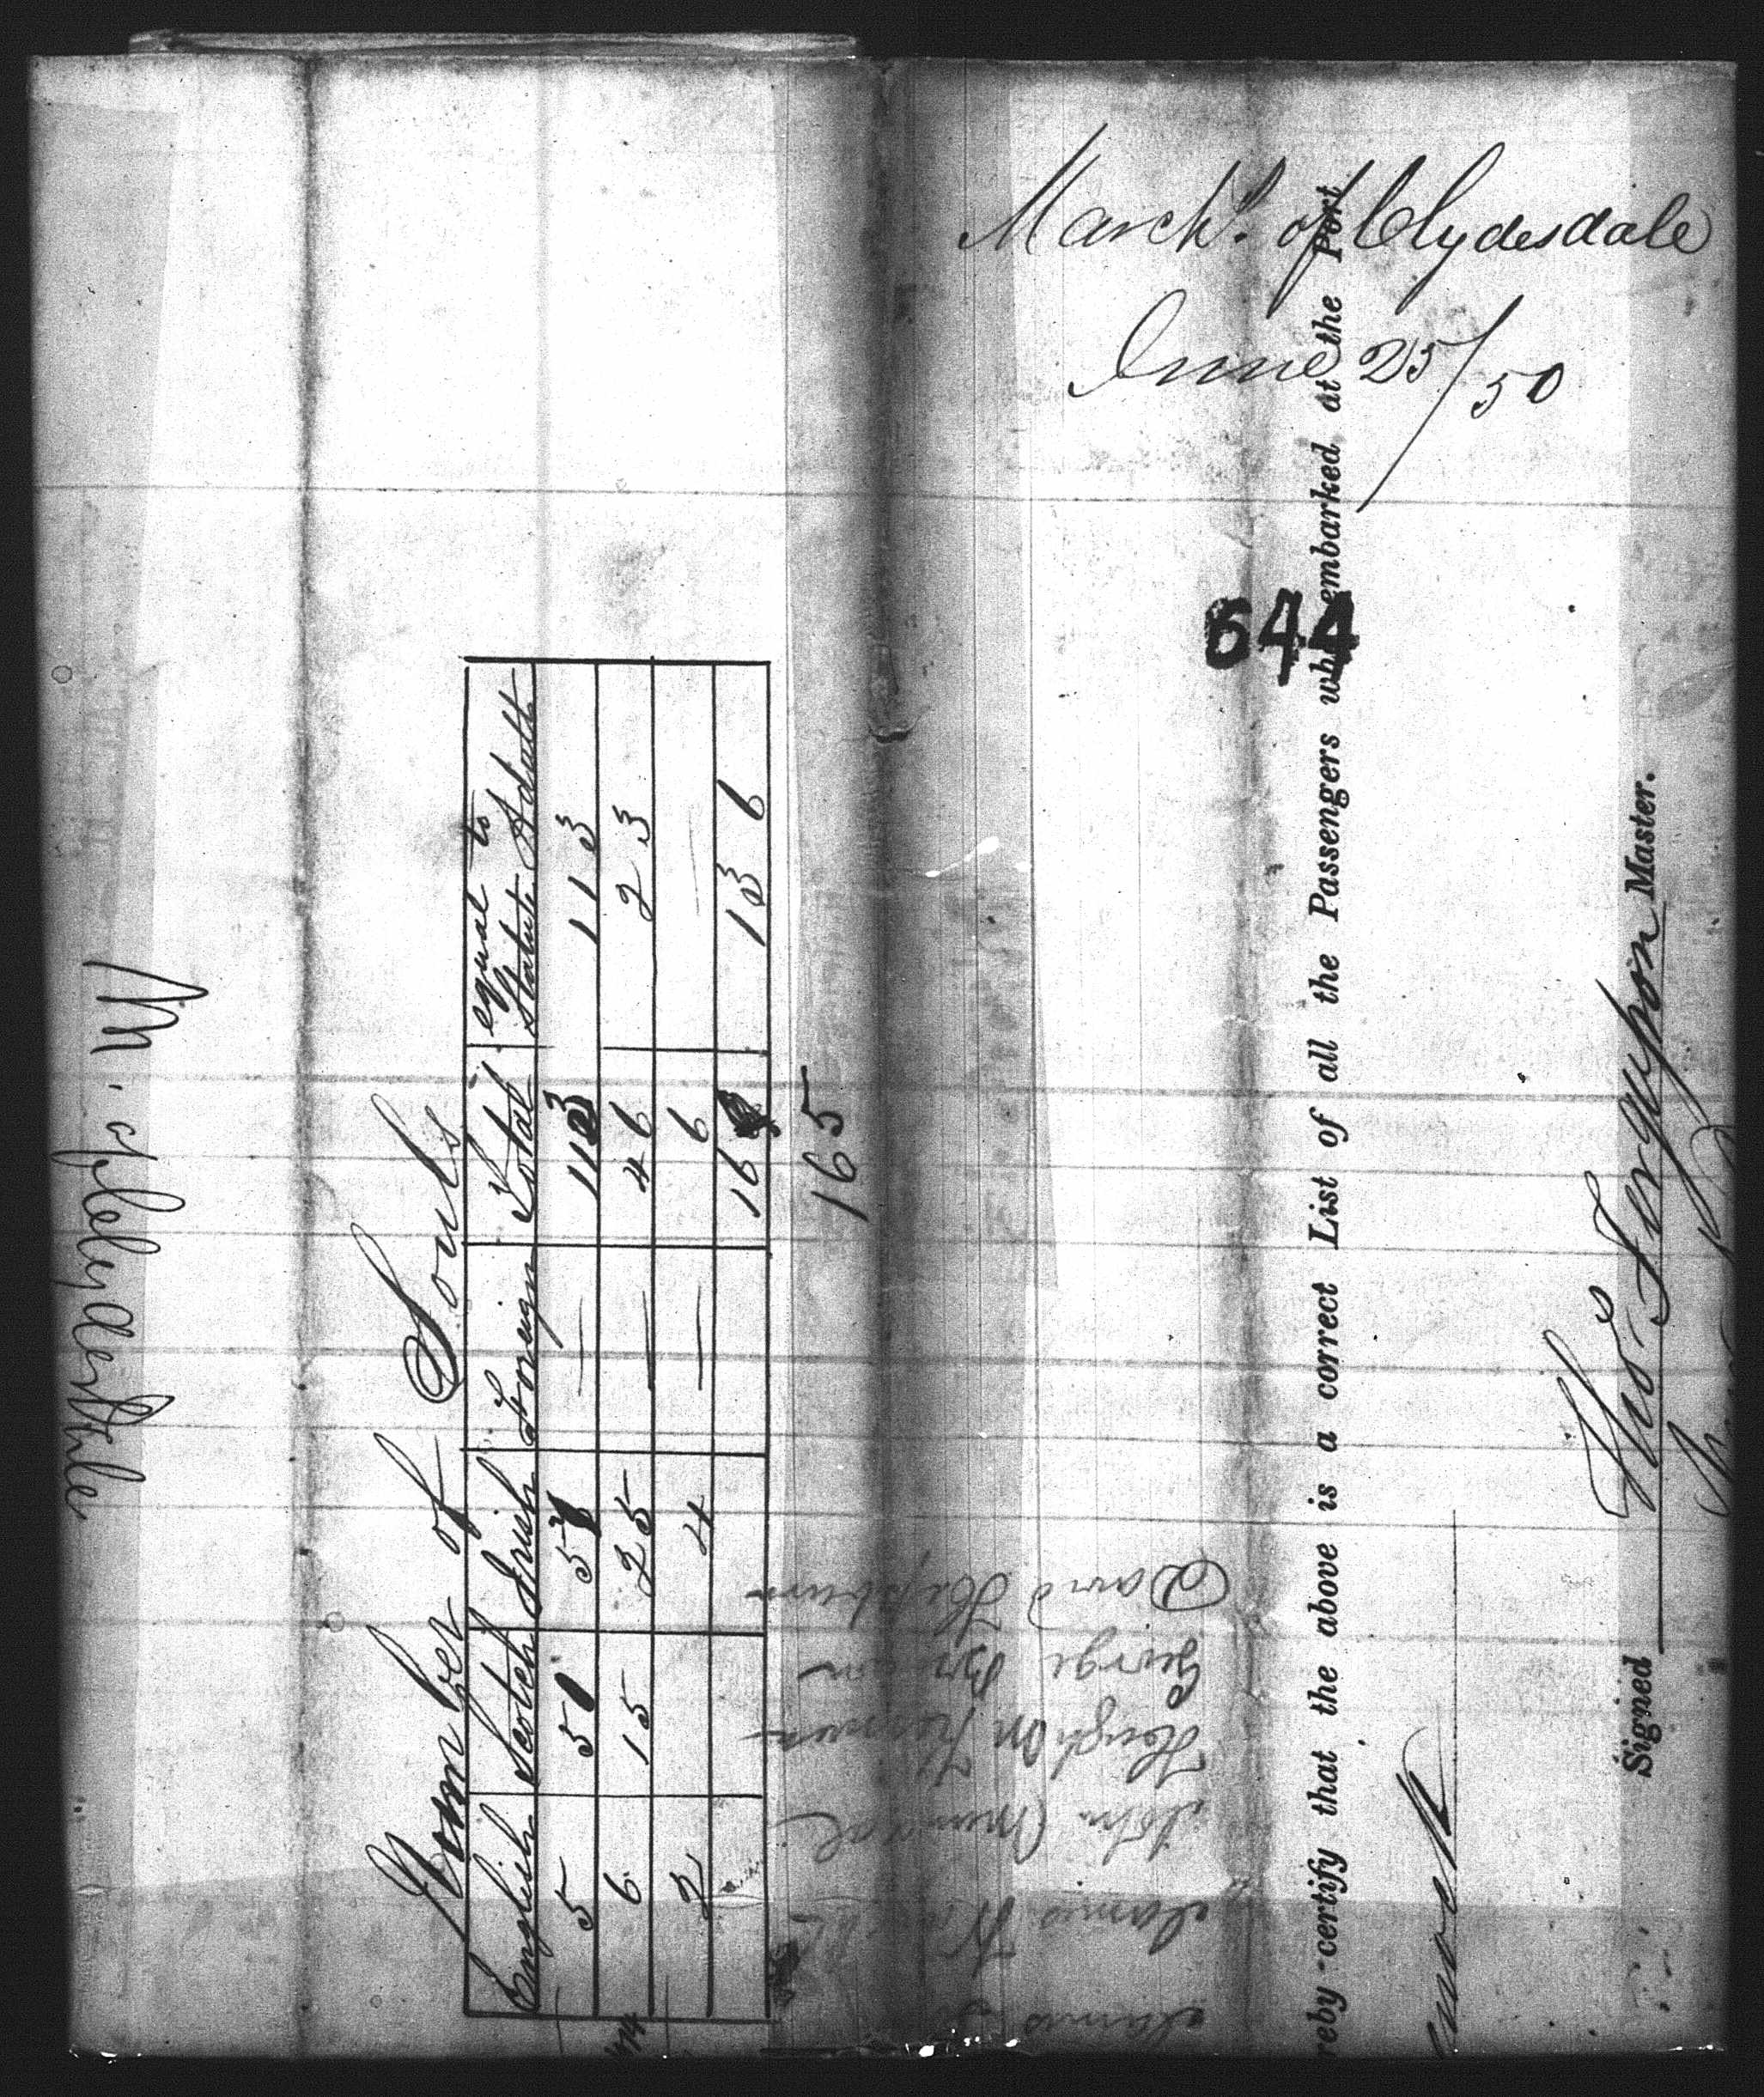 March.s of Clydesdale
June 25/50
644
reby certify that the above is a correct List of all the Passengers who embarked at the Port
Signed Thos Ferguson Master.
M. of Cleyderdhle
Number of Souls
English Scotch Irish Foreign Total equal to Statute Adults
5 50 57 — 113 113
6 15 25 — 46 23
2 4 — 6 —
16 136
165
David Hepburn
George Brown
Hough
John
James
James